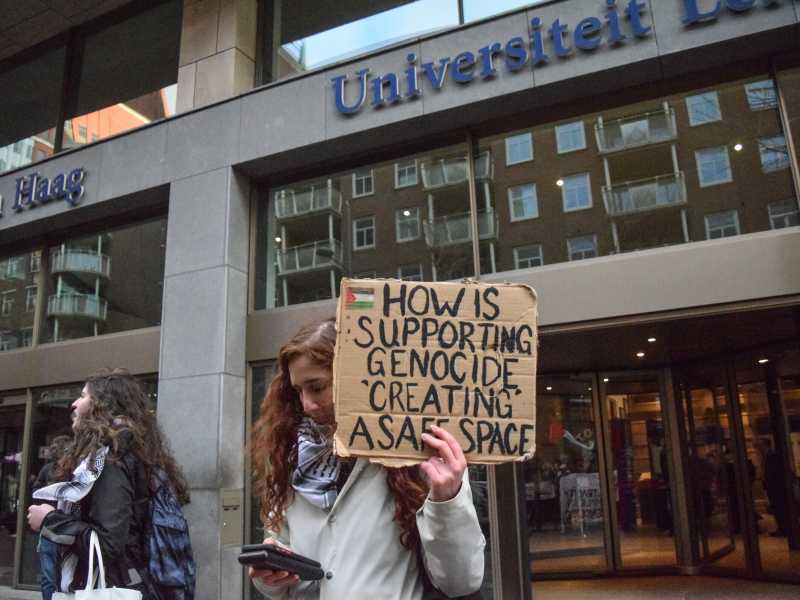 Universiteit Le
Haag
HOW IS
SUPPORTING
GENOCIDE
'CREATING'
A SAFE SPACE